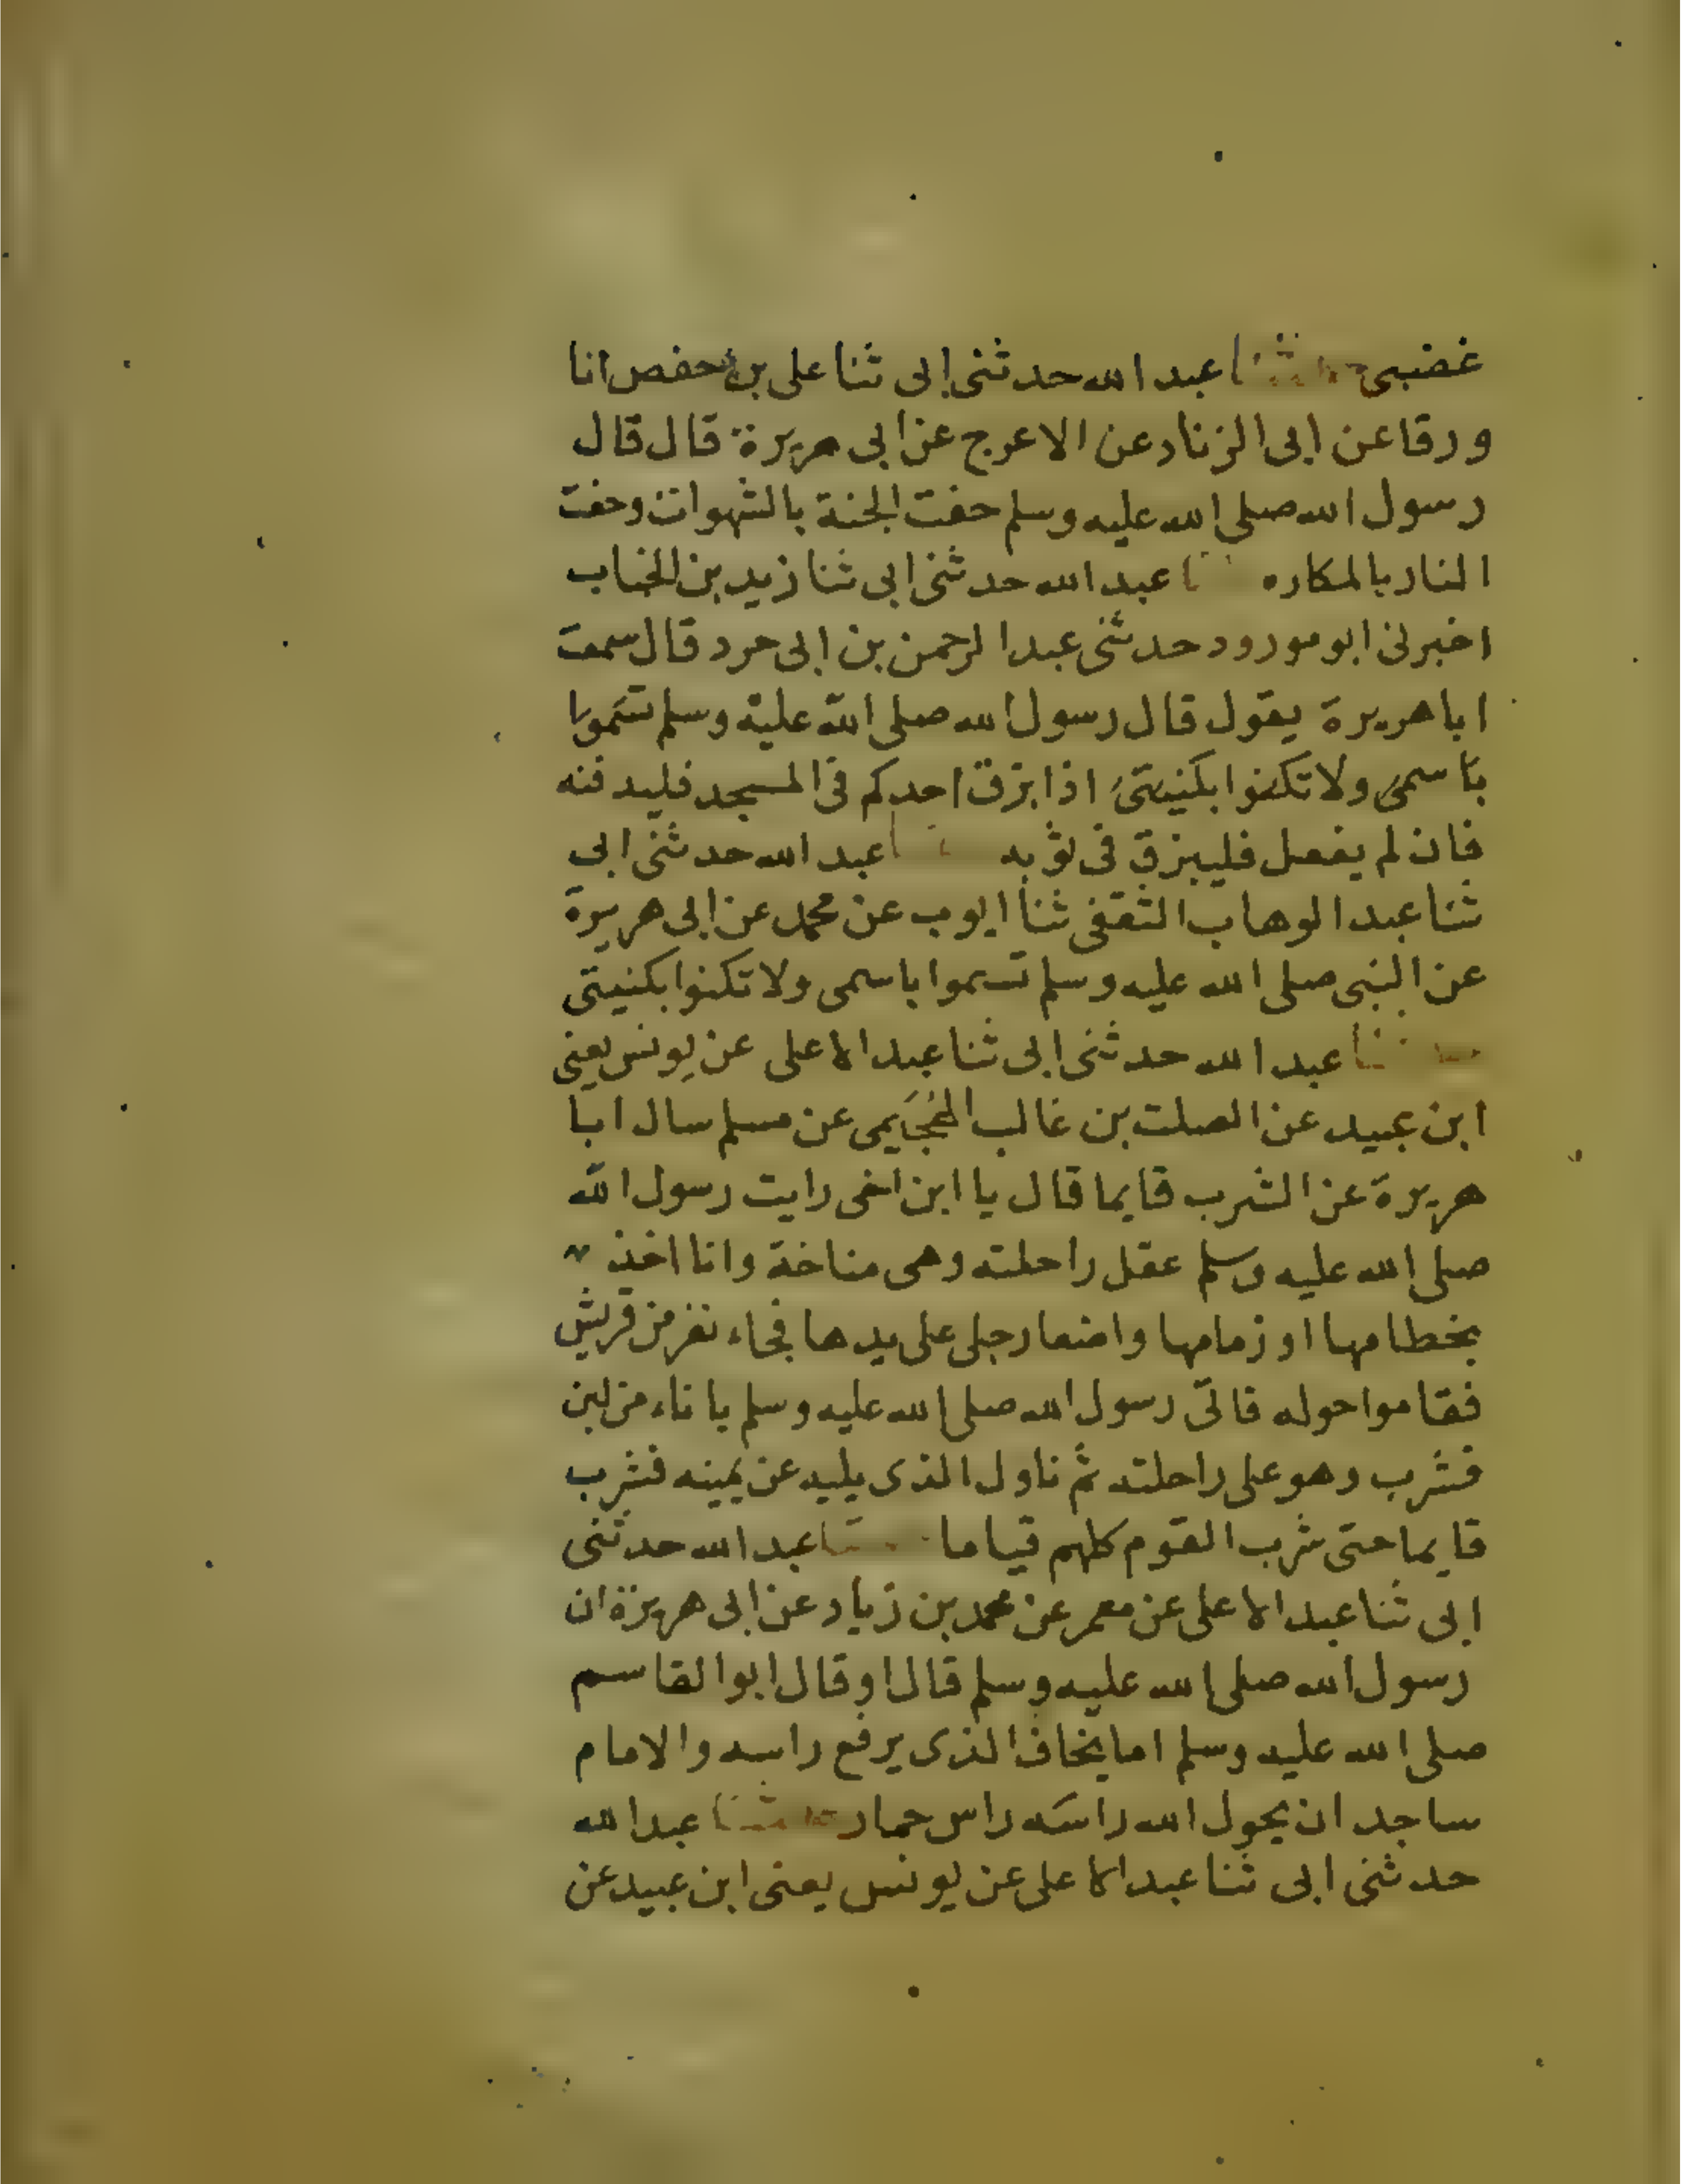 غضبى حدثنا عبد الله حدثنى ابى ثنا على بن حفص انا
ورقا عن ابى الزناد عن الاعرج عن ابى هريرة قال قال
رسول الله صلى الله عليه وسلم حفت الجنة بالشهوات وحفت
النار بالمكاره عبد الله حدثنى ابى ثنا زيد بن الخباب
اخبرنى ابو مودود حدثنى عبد الرحمن بن ابى حرد قال سمعت
ابا هريرة يقول قال رسول الله صلى الله عليه وسلم تسموا
باسمى ولا تكنوا بكنيتى اذا بزق احدكم فى المسجد فليدفنه
فان لم يفعل فليبزق فى ثوبه عبد الله حدثنى ابى
ثنا عبد الوهاب الثقفى ثنا ايوب عن محمد عن ابى هريرة
عن النبى صلى الله عليه وسلم تسموا باسمى ولا تكنوا بكنيتى
حدثنا عبد الله حدثنى ابى ثنا عبد الاعلى عن يونس يعنى
ابن عبيد عن الصلت بن غالب الهُجَيمى عن مسلم سال ابا
هريرة عن الشرب قايما قال يا ابن اخى رايت رسول الله
صلى الله عليه وسلم عقل راحلته وهى مناخة وانا اخذ
بخطامها او زمامها واضعا رجلى على يدها فجاء نفر من قريش
فقاموا حوله فاتى رسول الله صلى الله عليه وسلم باناء من لبن
فشرب وهو على راحلته ثم ناول الذى يليه عن يمينه فشرب
قايما حتى شرب القوم كلهم قياما حدثنا عبد الله حدثنى
ابى ثنا عبد الاعلى عن معمر عن محمد بن زياد عن ابى هريرة ان
رسول الله صلى الله عليه وسلم قال او قال ابو القاسم
صلى الله عليه وسلم اما يخاف الذى يرفع راسه والامام
ساجد ان يحول الله راسه راس حمار حدثنا عبد الله
حدثنى ابى ثنا عبد الاعلى عن يونس يعنى ابن عبيد عن